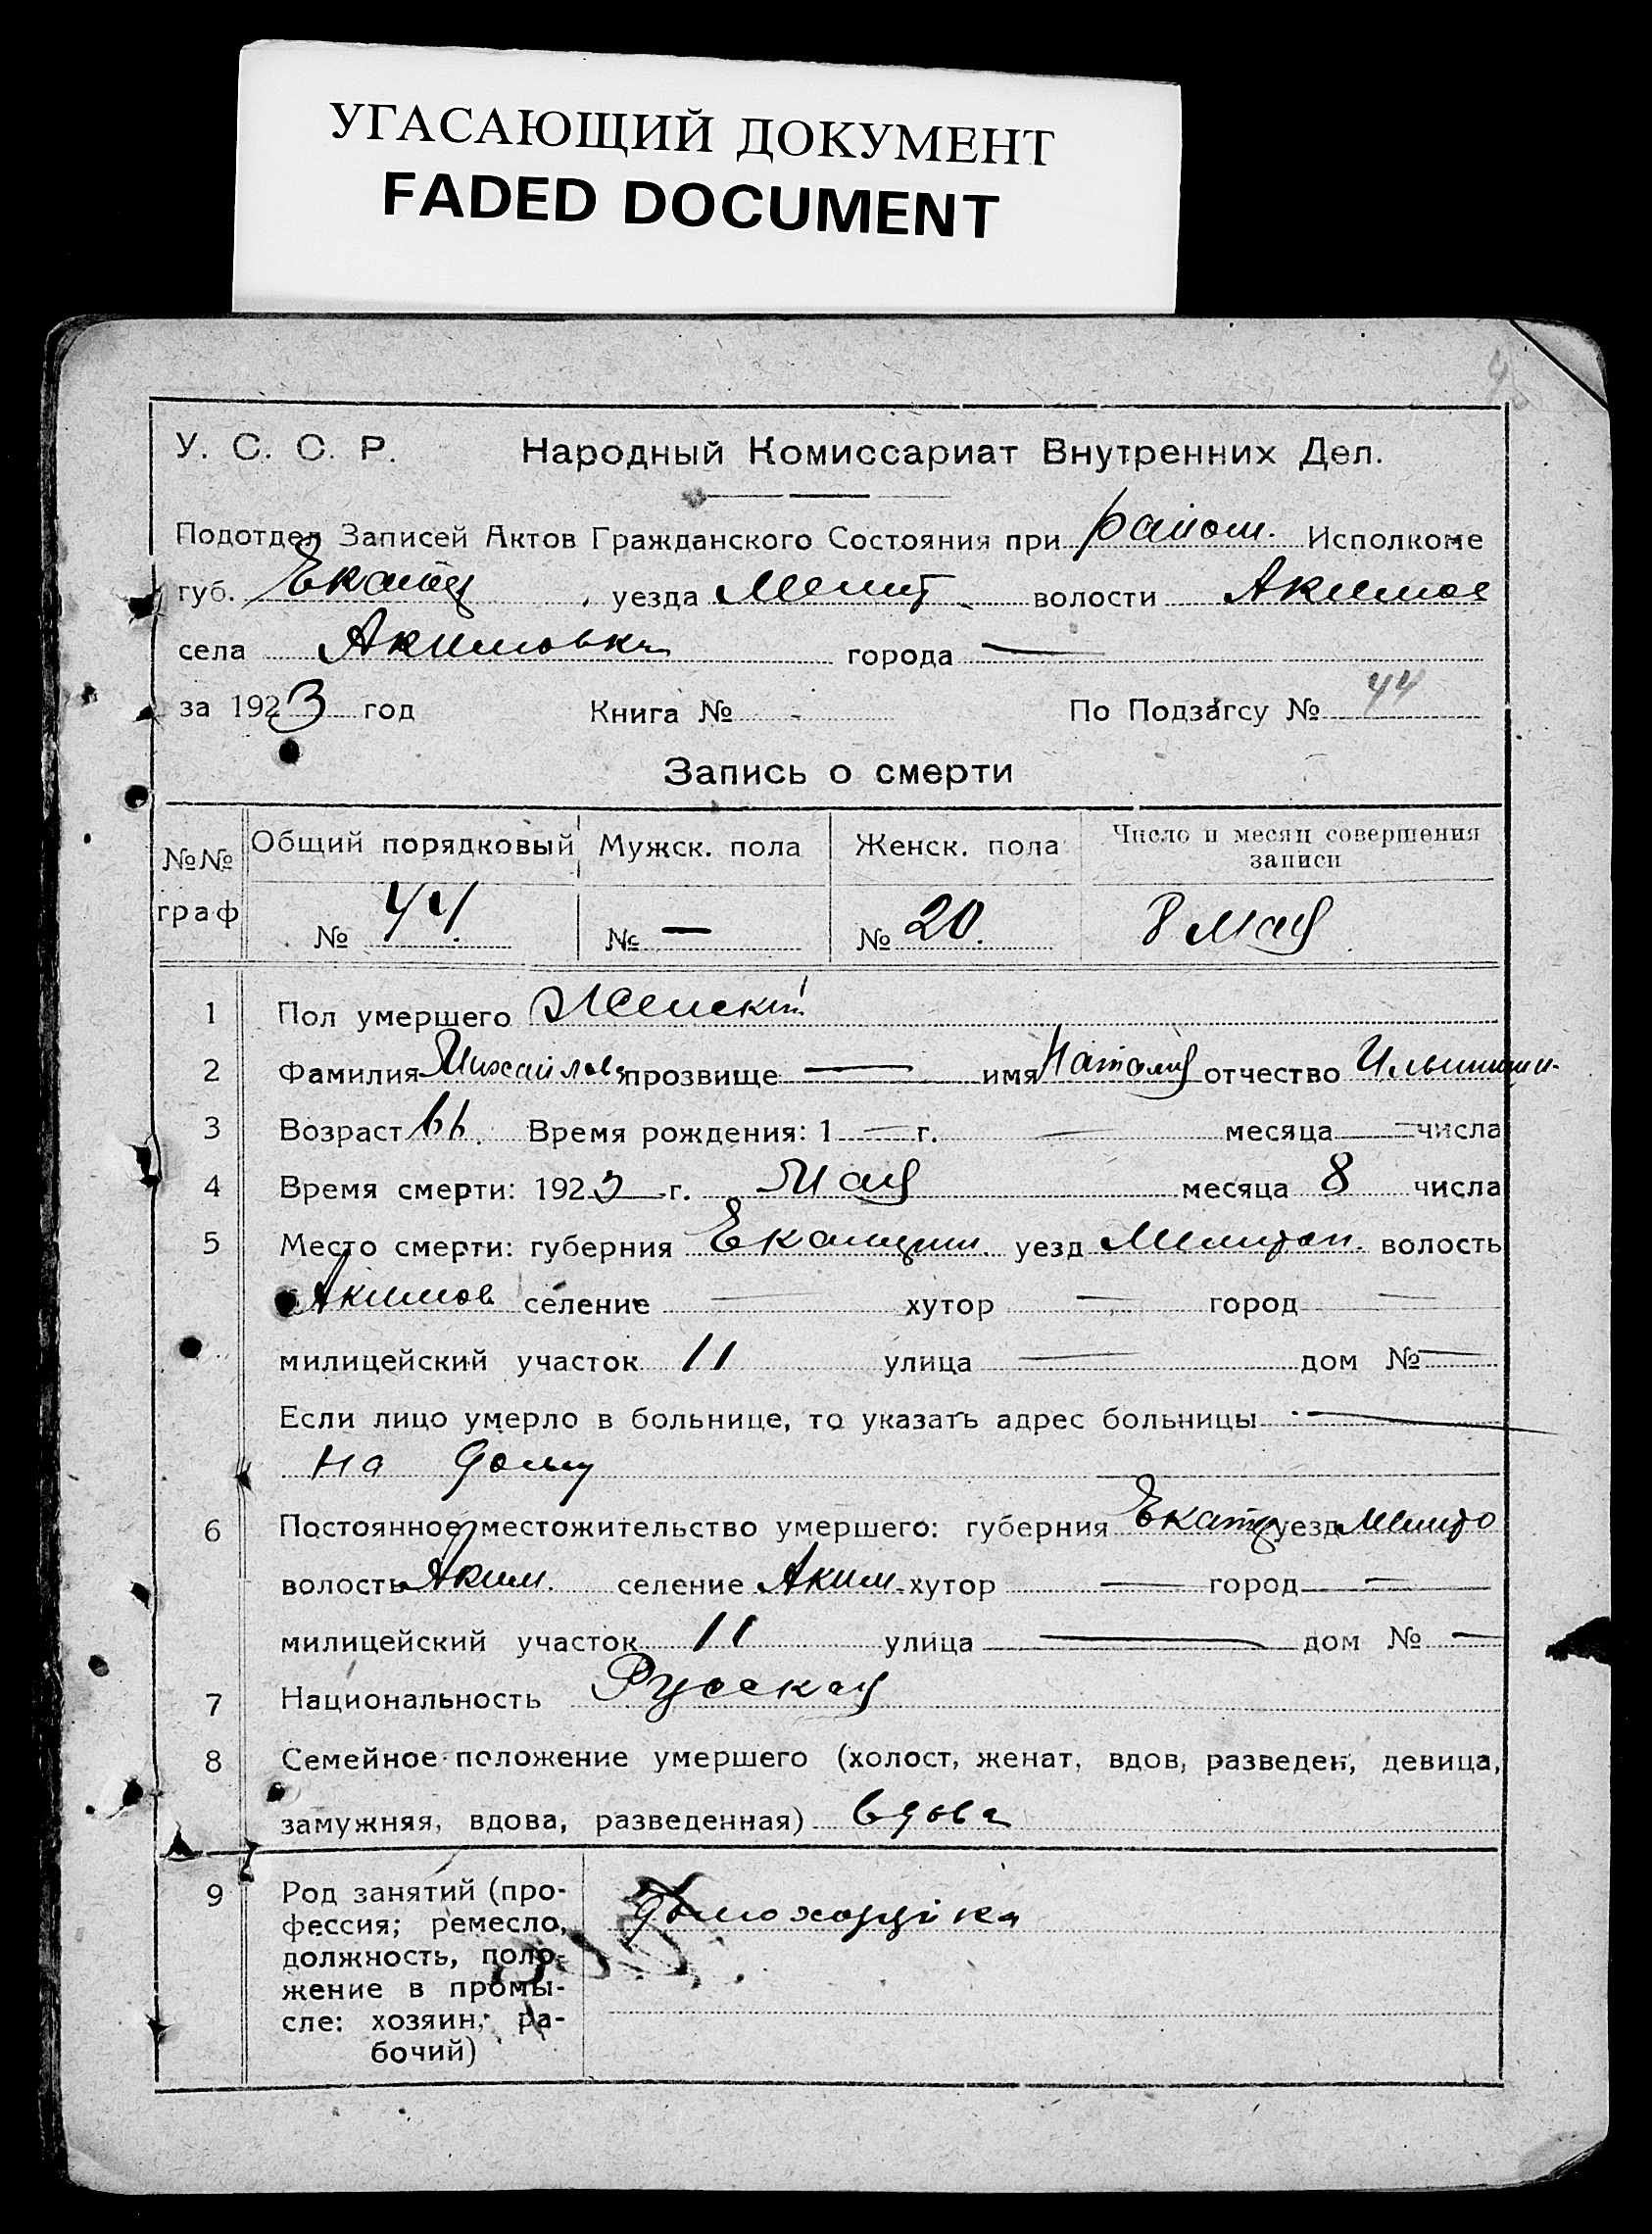 УГАСАЮЩИЙ ДОКУМЕНТ
FADED DOCUMENT
У. С. С. Р. Народный Комиссариат Внутренних Дел.
Подотдел Записей Актов Гражданского Состояния при район. Исполкоме
губ. Екатер уезда Мелит волости Акимов
села Акимовка города —
за 1923 год Книга № - По Подзагсу № 44
Запись о смерти
№№ граф Общий порядковый Мужск. пола Женск. пола Число и месяц совершения записи
№ 44. № — № 20. 8 мая
1 Пол умершего Женский
2 Фамилия Михайлова прозвище — имя Наталия отчество Ильинишн.
3 Возраст 66. Время рождения: 1 — г. — месяца — числа
4 Время смерти: 1923 г. Мая месяца 8 числа
5 Место смерти: губерния Екатерин. уезд Мелитоп. волость
Акимов селение — хутор — город —
милицейский участок 11 улица — дом № —
Если лицо умерло в больнице, то указать адрес больницы —
на дому
6 Постоянное местожительство умершего: губерния Екатер уезд Мелито
волость Аким. селение Аким. хутор — город —
милицейский участок 11 улица — дом № —
7 Национальность Русская
8 Семейное положение умершего (холост, женат, вдов, разведен, девица,
замужняя, вдова, разведенная) вдова
9 Род занятий (про-
фессия; ремесло,
должность, поло-
жение в промы-
сле: хозяин, ра-
бочий)
домохозяйка